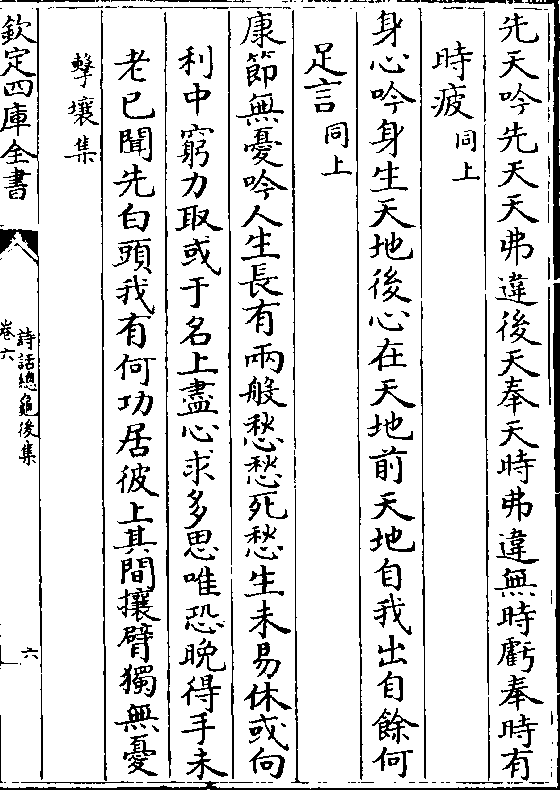 先天吟先天天弗違後天奉天時弗違無時虧奉時有
時疲同上
身心吟身生天地後心在天地前天地自我出自餘何
足言同上
康節無憂吟人生長有兩般愁愁死愁生未易休或向
利中窮力取或于名上盡心求多思唯恐晚得手未
老已聞先白頭我有何功居彼上其間攘臂獨無憂
擊壤集
欽定四庫全書
詩話總龜後集
卷六
六